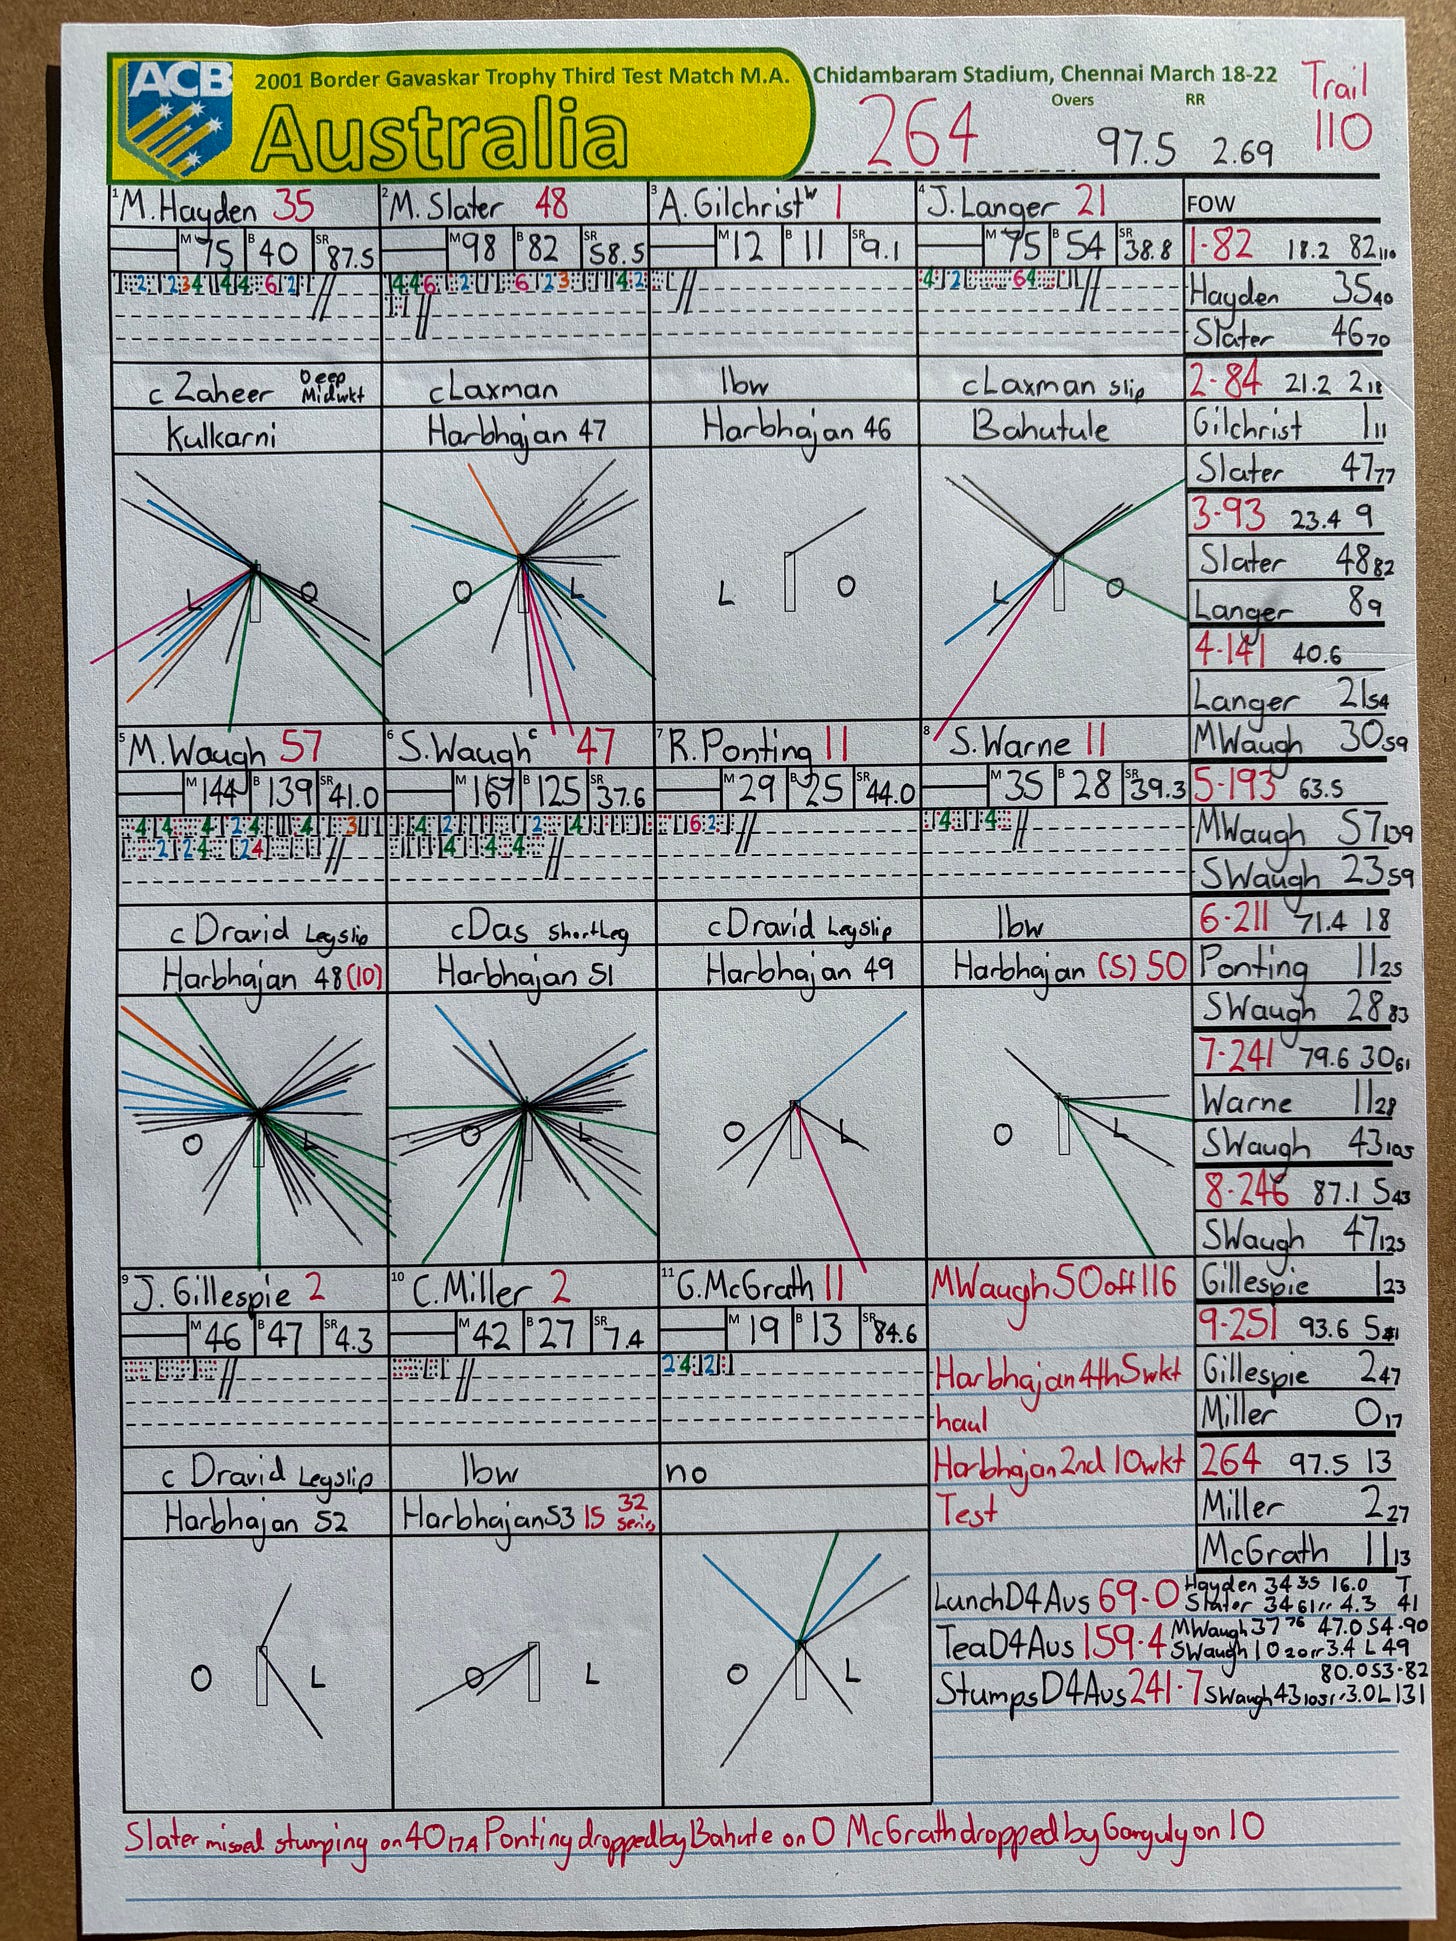 ACB 2001 Border Gavaskar Trophy Third Test Match M.A. Chidambaram Stadium, Chennai March 18-22
Australia
264
Overs 97.5
RR 2.69
Trail 110
1 M. Hayden 35
M 75 B 40 SR 87.5
c Zaheer Deep Midwkt
Kulkarni
2 M. Slater 48
M 98 B 82 SR 58.5
c Laxman
Harbhajan 47
3 A. Gilchrist w 1
M 12 B 11 SR 9.1
lbw
Harbhajan 46
L O
4 J. Langer 21
M 75 B 54 SR 38.8
c Laxman slip
Bahutule
5 M. Waugh 57
M 144 B 139 SR 41.0
c Dravid Legslip
Harbhajan 48 (10)
6 S. Waugh c 47
M 167 B 125 SR 37.6
c Das Short Leg
Harbhajan 51
7 R. Ponting 11
M 29 B 25 SR 44.0
c Dravid Legslip
Harbhajan 49
8 S. Warne 11
M 35 B 28 SR 39.3
lbw
Harbhajan (5) 50
9 J. Gillespie 2
M 46 B 47 SR 4.3
c Dravid Legslip
Harbhajan 52
10 C. Miller 2
M 42 B 27 SR 7.4
lbw
Harbhajan 53 15 32 series
11 G. McGrath 11
M 19 B 13 SR 84.6
no
FOW
1-82 18.2 82 110
Hayden 35 40
Slater 46 70
2-84 21.2 2 18
Gilchrist 1 11
Slater 47 77
3-93 23.4 9
Slater 48 82
Langer 8 9
4-141 40.6
Langer 21 54
MWaugh 30 59
5-193 63.5
MWaugh 57 139
SWaugh 23 59
6-211 71.4 18
Ponting 11 25
SWaugh 28 83
7-241 79.6 30 61
Warne 11 28
SWaugh 43 105
8-246 87.1 5 43
SWaugh 47 125
Gillespie 1 23
9-251 93.6 5
Gillespie 2 47
Miller 0 17
264 97.5 13
Miller 2 27
McGrath 11 13
MWaugh 50 off 116
Harbhajan 4th 5wkt
haul
Harbhajan 2nd 10wkt
Test
Lunch D4 Aus 69-0 Hayden 34 35 16.0 T
Slater 34 61 rr 4.3 41
Tea D4 Aus 159-4 MWaugh 37 76 47.0 54-90
SWaugh 10 20 rr 3.4 L 49
Stumps D4 Aus 241-7 80.0 53-82
SWaugh 43 105 rr 3.0 L 131
Slater missed stumping on 40 Ponting dropped by Bahute on 0 McGrath dropped by Ganguly on 10